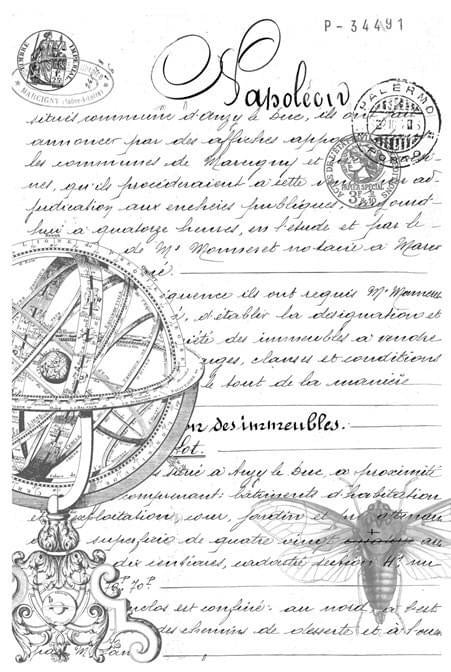 P-34491
TIMBRE IMPERIAL
MARCIGNY (Saône-et-Loire)
Napoléon
PALERMO
PORTO
PAPIER SPECIAL
situés commune d'Anzy le Duc, ils ont fait
annoncer par des affiches
les communes de Marcigny et
nes, qu'ils procéderaient à cette ad
judication aux enchères publiques, aujourd
hui à quatorze heures, en l'étude et par le
de Me Monseret notaire à Marci
séquence ils ont requis Me
d'établir la désignation et
été des immeubles à vendre
arges, clauses et conditions
le tout de la manière
on des immeubles.
lot.
à Anzy le Duc, à proximité
comprenant: bâtiments d'habitation
et exploitation cour, jardin et
superficie de quatre vingt au
dix centiares, cadastré section
est confiné: au nord à l'est
des chemins de desserte et à l'ou